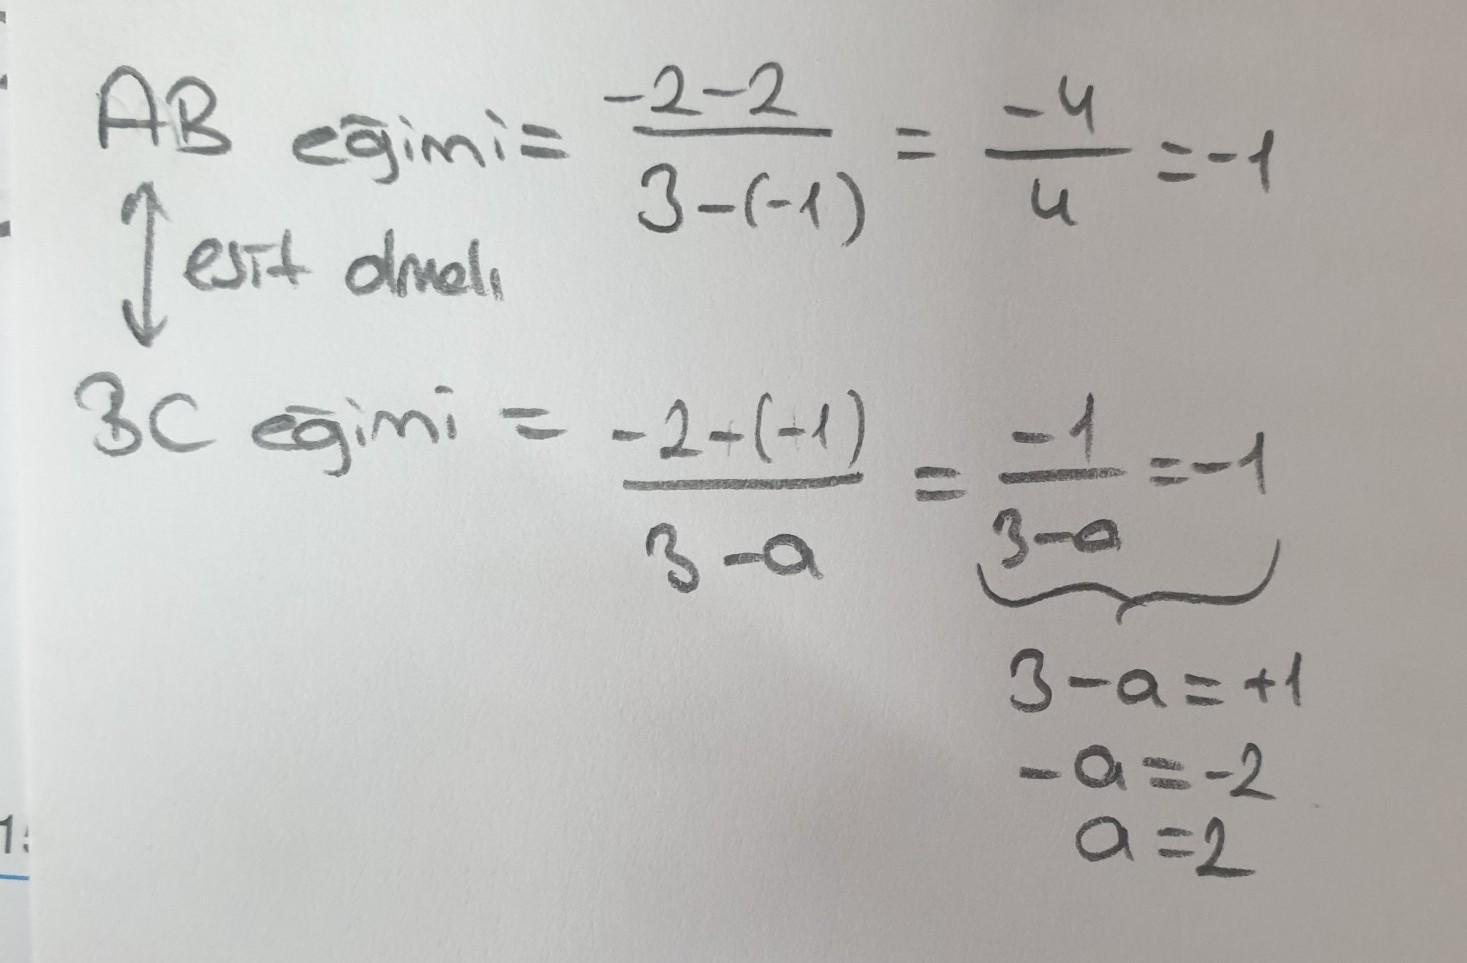 AB eğimi = -2-2 / 3-(-1) = -4 / 4 = -1
eşit olmalı
BC eğimi = -2-(-1) / 3-a = -1 / 3-a = -1
3-a = +1
-a = -2
a = 2